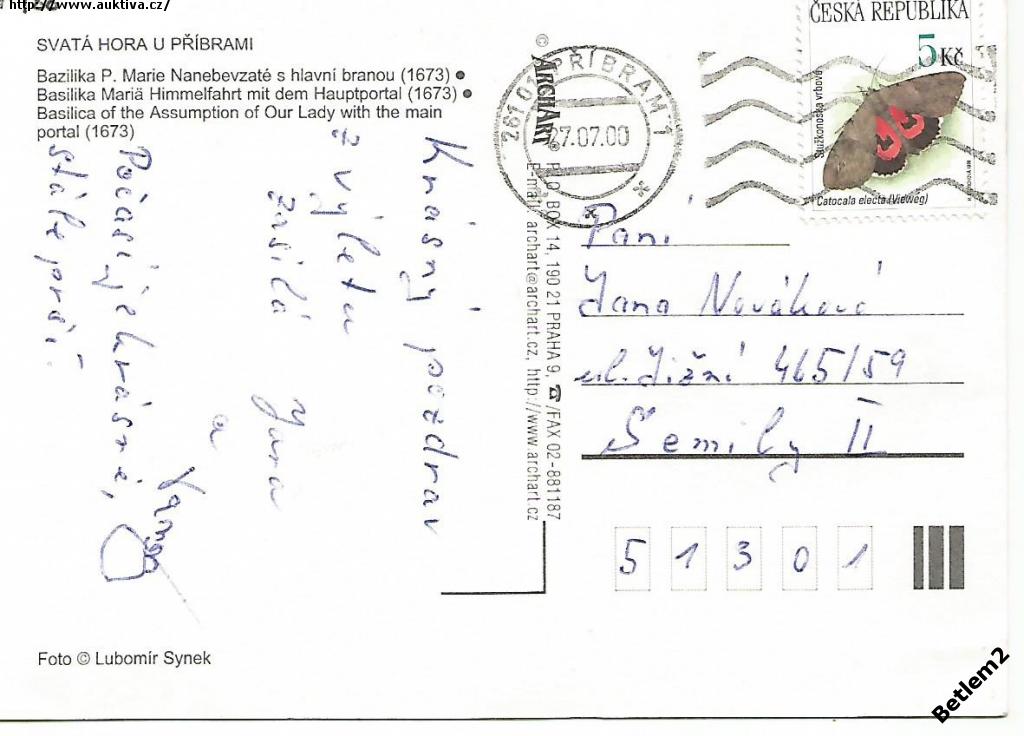 http://www.auktiva.cz/
SVATÁ HORA U PŘÍBRAMI
Bazilika P. Marie Nanebevzaté s hlavní branou (1673) ●
Basilika Mariä Himmelfahrt mit dem Hauptportal (1673) ●
Basilica of the Assumption of Our Lady with the main
portal (1673)
Krásný pozdrav
z výletu
zasílá Jara
a
Počasí je krásné,
stále prší.
Foto © Lubomír Synek
© ARCHART ® P. O. BOX 14, 190 21 PRAHA 9, ☎/FAX 02-881187
E-mail: archart@archart.cz, http://www.archart.cz
26101 PŘÍBRAM 1
27.07.00
ČESKÁ REPUBLIKA
5 Kč
Stužkonoska vrbová
Catocala electa (Vieweg)
Paní
Jana Nováková
ul. Jižní 465/59
Semily II
5 1 3 0 1
Betlem2